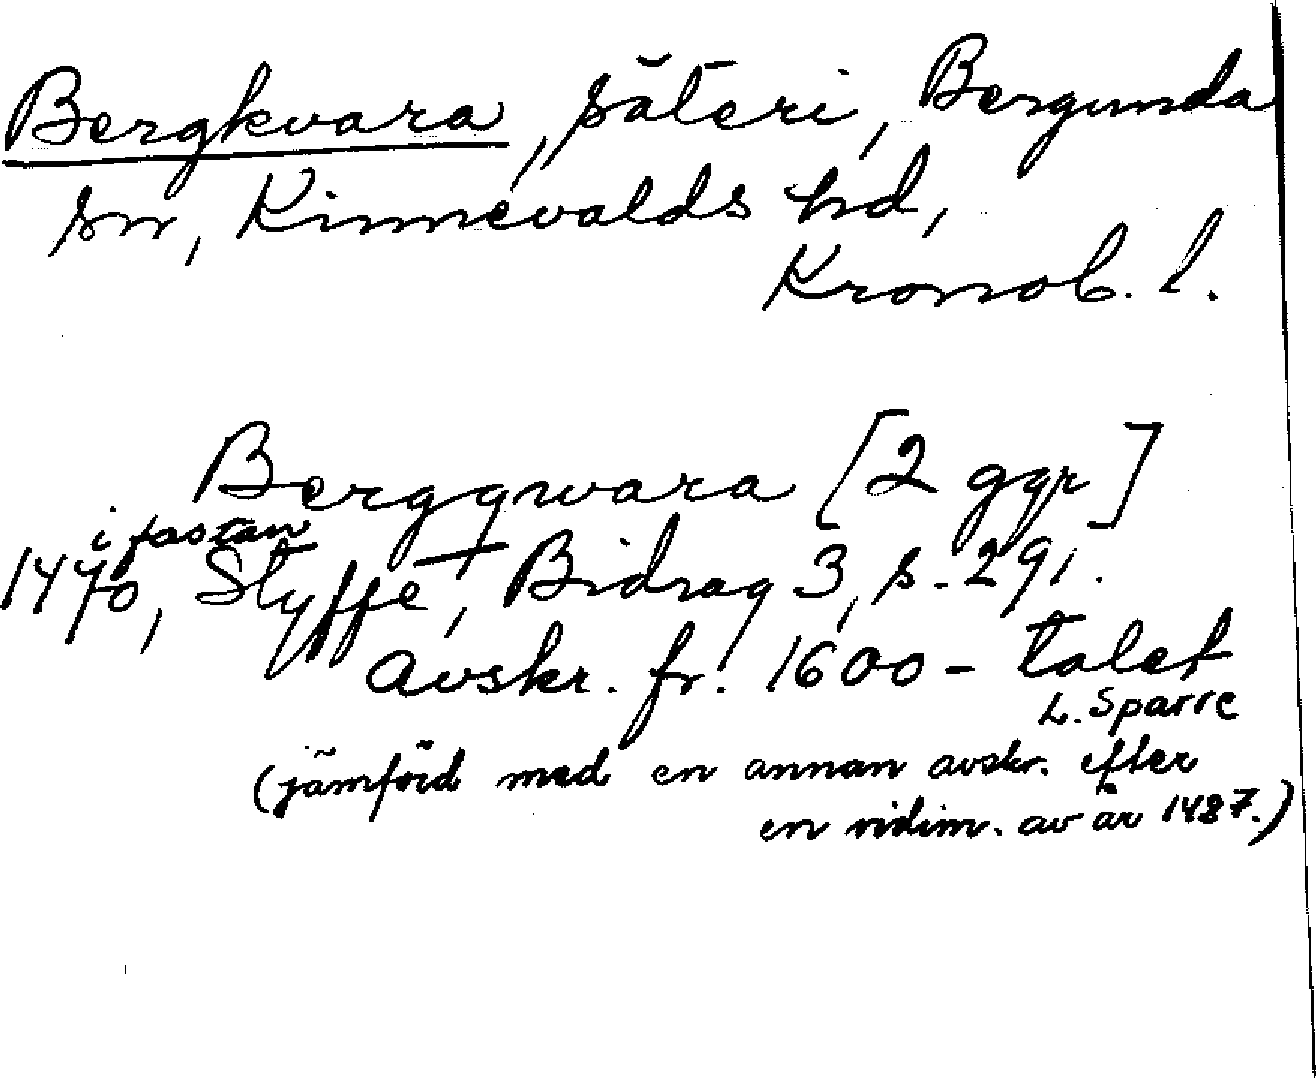 Bergkvara, säteri, Bergunda
sn, Kinnevalds hd,
Kronob. l.
Bergqwara [2 ggr]
i fastan
1470, Styffe, Bidrag 3, s. 291.
Avskr. fr. 1600-talet
L. Sparre
(jämförd med en annan avskr. efter
en vidim. av år 1487.)